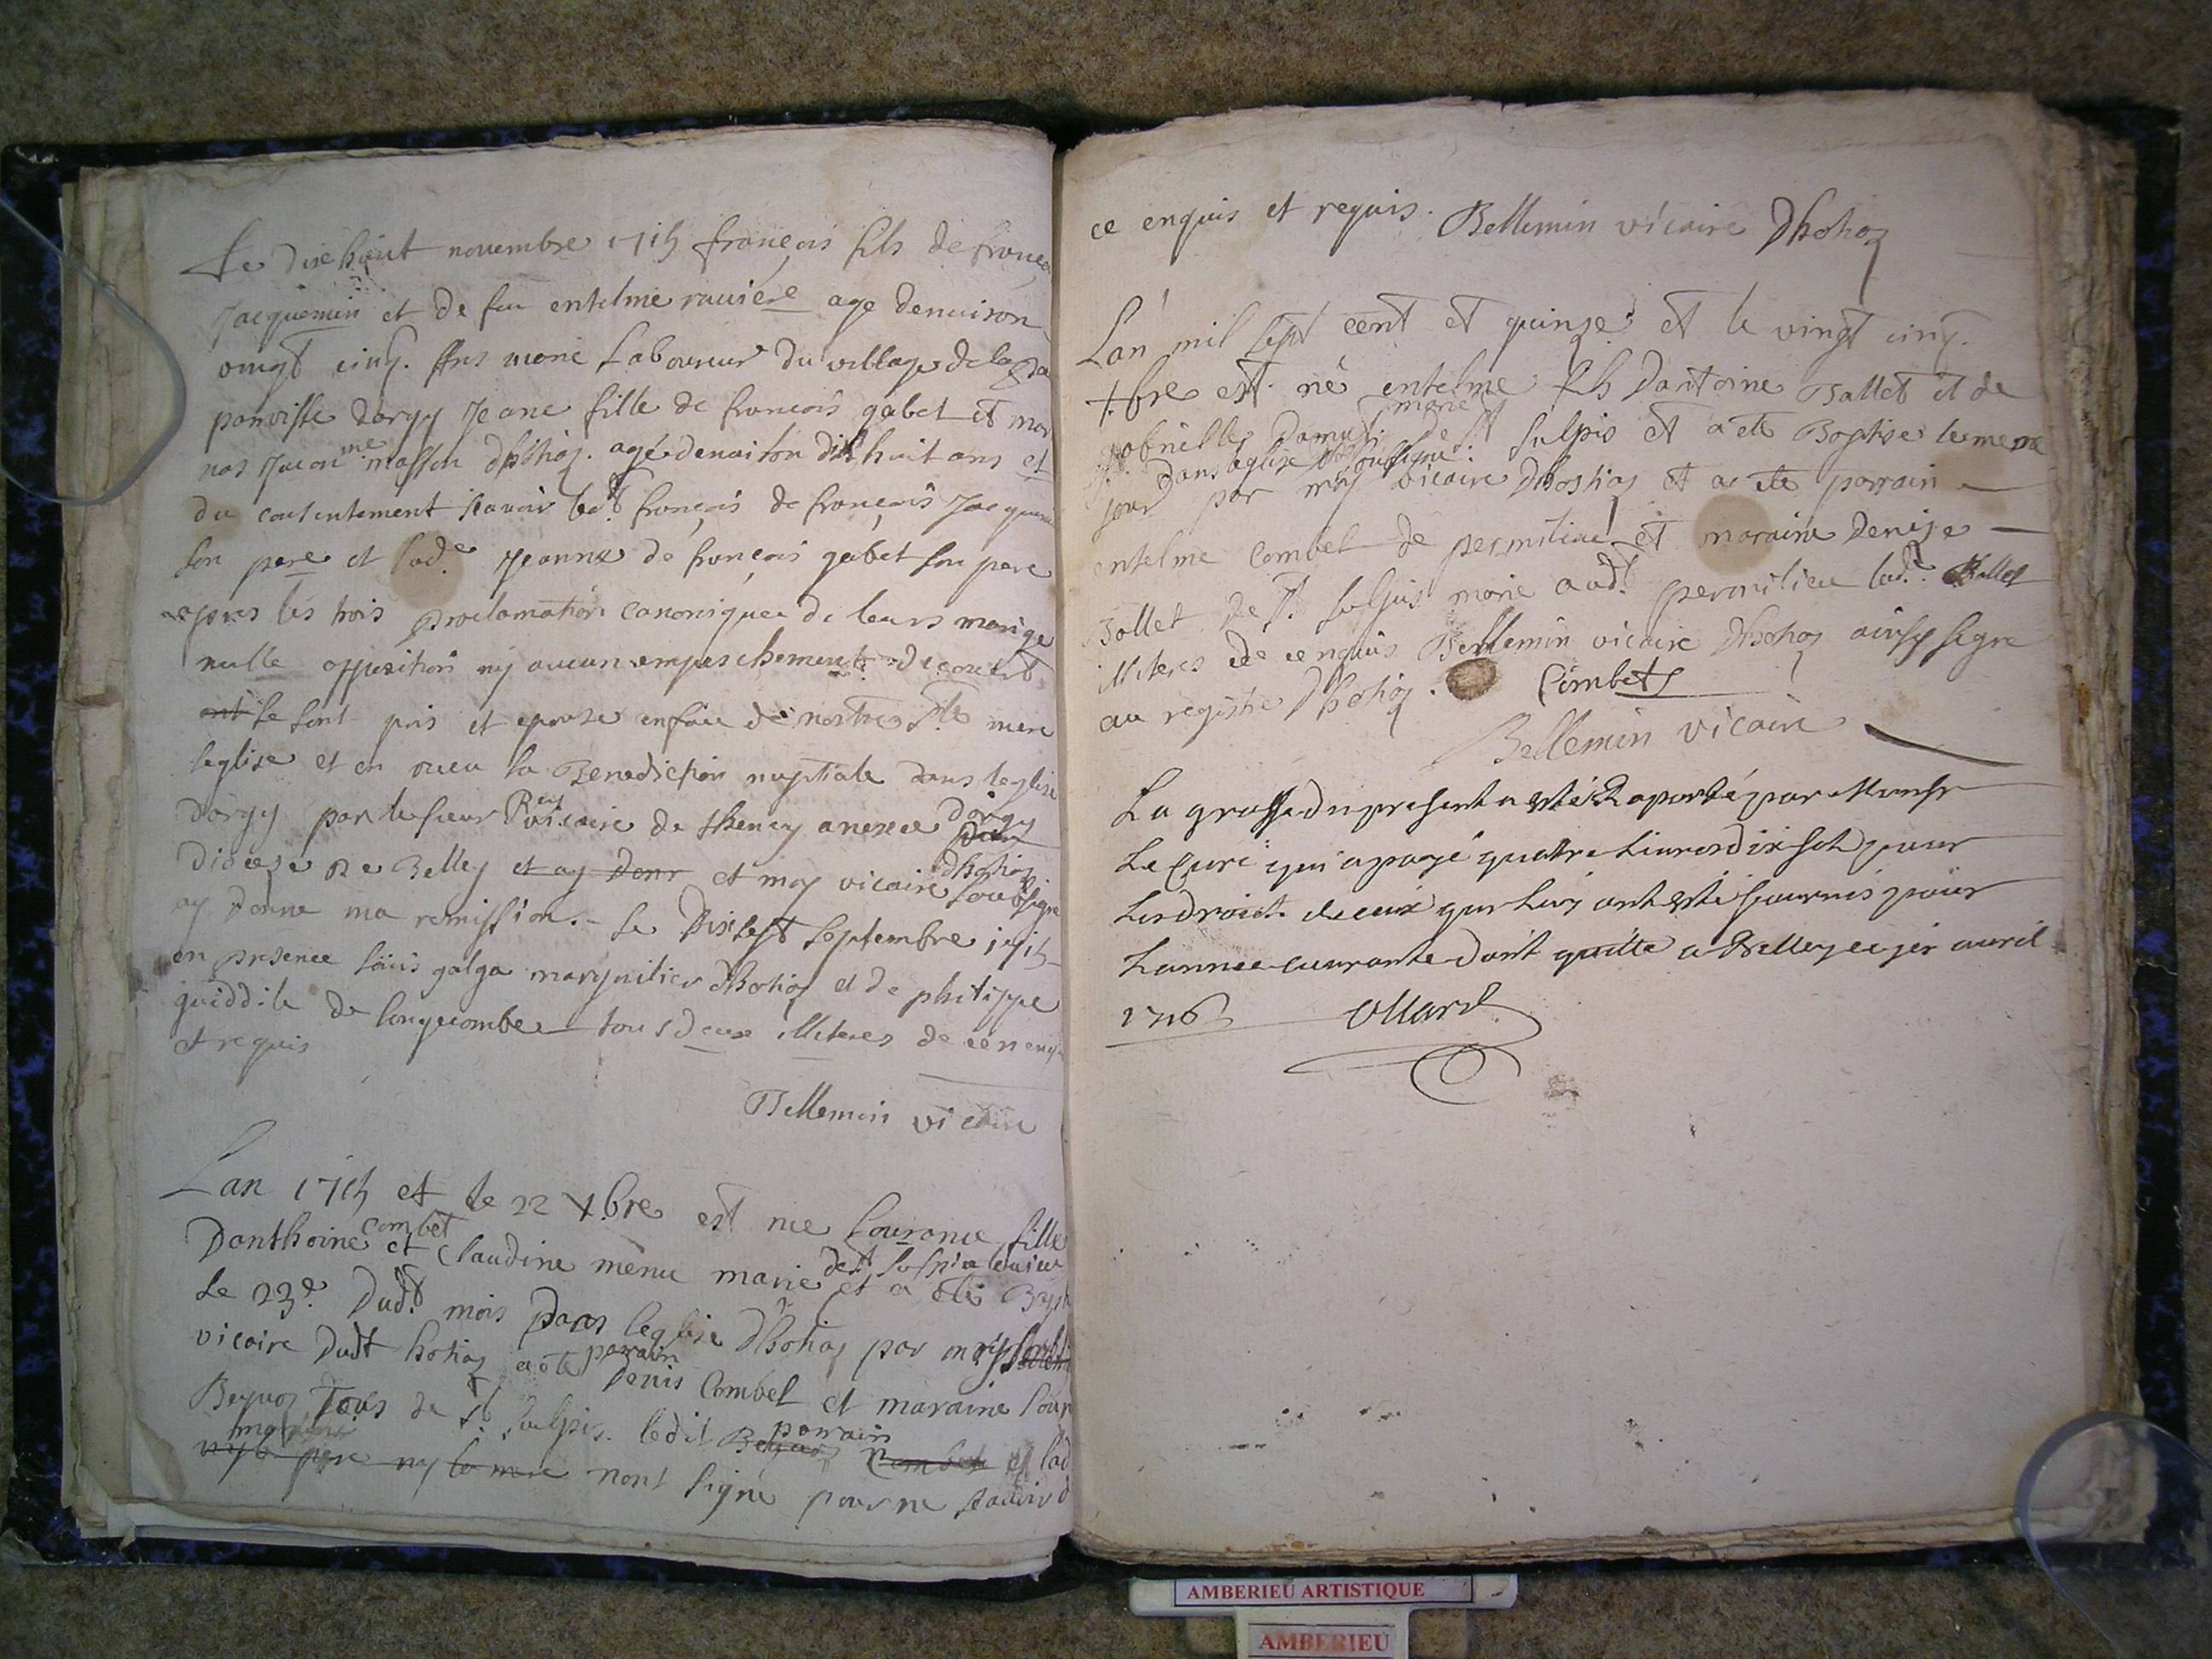 Le dixhuit novembre 1715 françois fils de françois
Jacquemin et de feu entelme raviére age denuiron
vingt cinq. Ans marié Laboureur du village de la
parroisse dorgy Jeane fille de francois gabet et
masson dhotiaz. agé denuiron dixhuit ans et
du consentement scavoir led.t françois de françois Jacquemin
son pere et lad.e Jeanne de françois gabet son pere
apres les trois proclamation canoniques de leurs mariage
nulle opposition ny aucun empeschement decouert
ont se sont pris et epouse enface de nostre Ste mere
leglise et on recu la Benediction nuptiale dans leglise
dorgy par le sieur Rey vicaire de thenay anexe dorgy
diocese De Belley et ay Donne et moy vicaire dhotiaz soubsigne
ay donne ma remission. Le Dixsept septembre 1715
en presence Louis galga marguilier dhotiaz et de philippe
de longecombe tous deux illiteres de ce enquis
et requis
Bellemin vicaire
Lan 1715 et le 22 Xbre est nee fille
Danthoine combet et Claudine menu marie de St sulpis
Le 23e. Dudt mois Dans leglise dhotiaz par moy
vicaire Dudt hotiaz a ete parrain Denis Combet et maraine
Tous de St. sulpis. ledit parrain Combet et lad
ny le pere ny la mere nont signé pour ne scavoir d
ce enquis et requis. Bellemin vicaire Dhotiaz
Lan mil sept cent et quinze et le vingt cinq.
Xbre est né entelme fils Dantoine Ballet et de
gabrielle marié de St sulpis et a ete Baptise le meme
jour dans leglise par moy soussigné vicaire Dhostiaz et a ete parrain
entelme Combet de permilieu et maraine Denise
Ballet de St. sulpis marié aud.t permilieu lad.t Ballet
illiteres de ce enquis Bellemin vicaire Dhotiaz ainsy signe
au registre Dhotiaz. Combet
Bellemin vicaire
La grosse du present a esté Raporté par Monsr
Le Curé qui a payé quatre Livres dix sols pour
Les droits de ceux que Luy ont esté fournis pour
Lannee courante dont quitte a Belley ce jer avril
1716 Ollard
AMBERIEU ARTISTIQUE
AMBERIEU